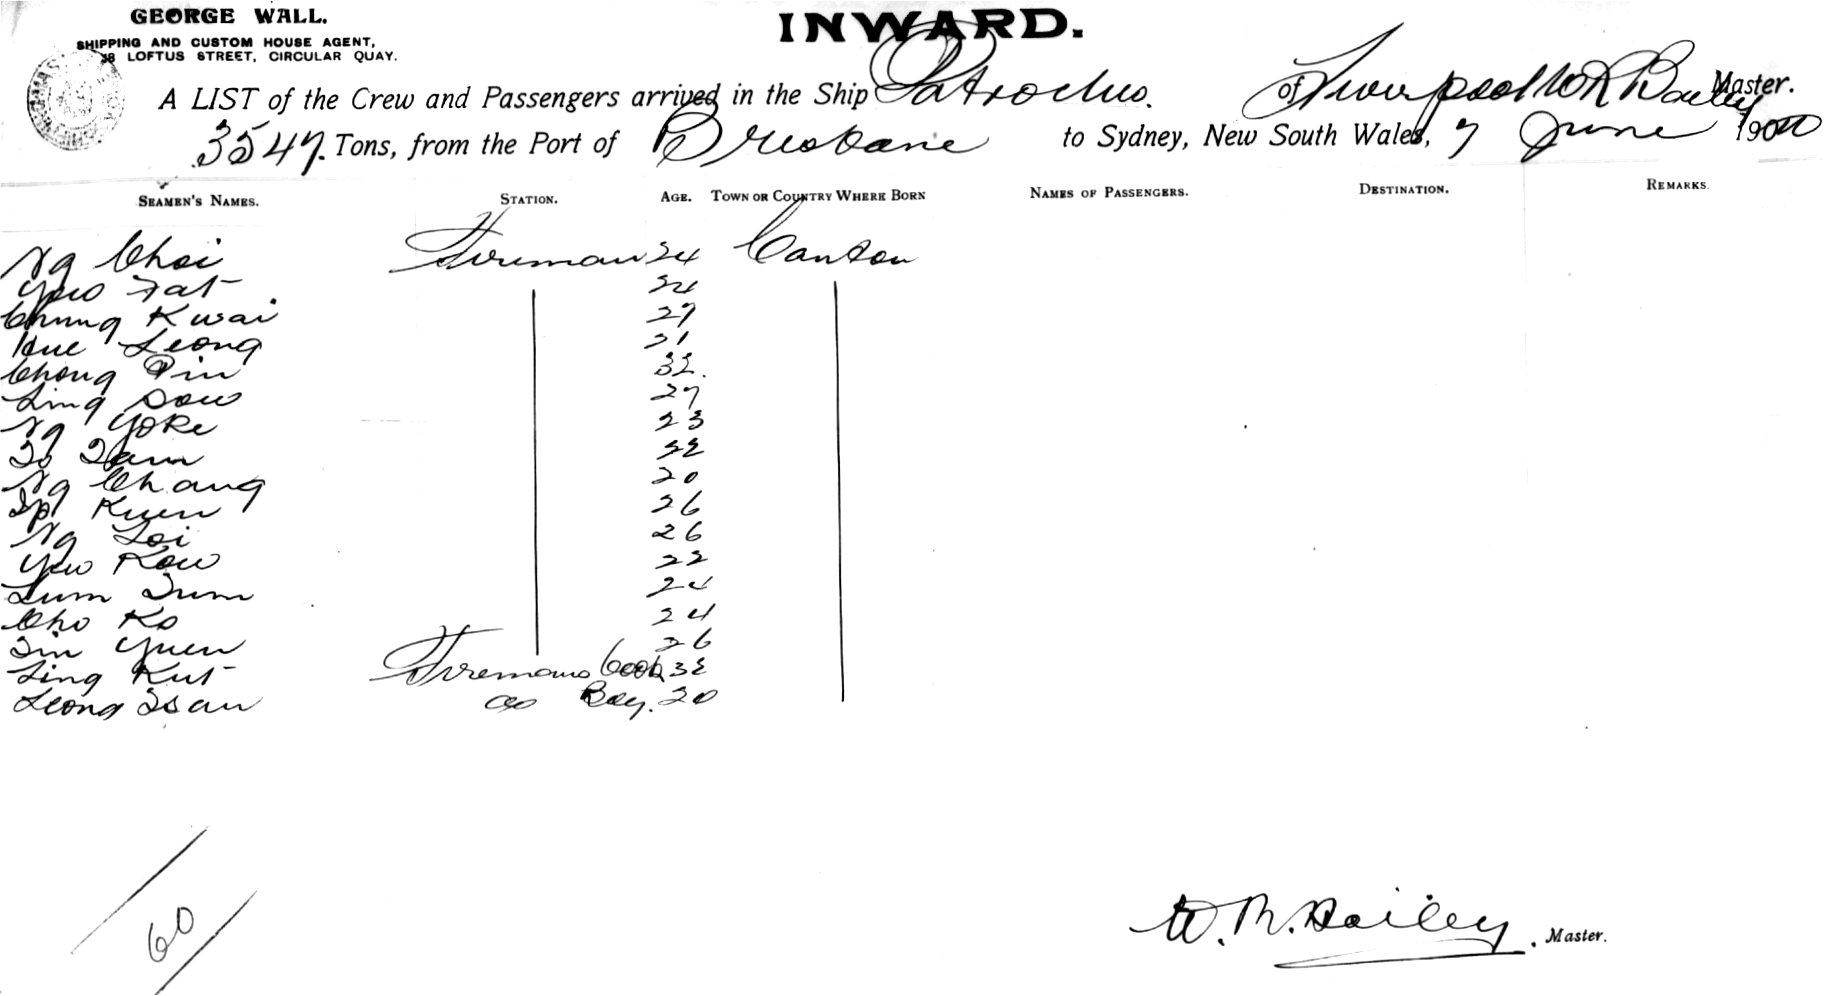 GEORGE WALL.
SHIPPING AND CUSTOM HOUSE AGENT,
LOFTUS STREET, CIRCULAR QUAY.
INWARD.
A LIST of the Crew and Passengers arrived in the Ship Patroclus. of Liverpool W R Bailey Master.
3547. Tons, from the Port of Brisbane to Sydney, New South Wales, 7 June 1900
SEAMEN'S NAMES. STATION. AGE. TOWN OR COUNTRY WHERE BORN NAMES OF PASSENGERS. DESTINATION. REMARKS.
Ng Choi Fireman 34 Canton
Yow Fat 34
Chung Kwai 27
Hue Leong 31
Chong Pin 32.
Ling Sow 27
Ng Yoke 23
To Tam 32
Ng Chang 20
Ip Kuen 26
Ng Loi 26
Yow Kow 22
Lum Tum 24
Cho Ko 24
Tin Yuen 26
Ling Kut Firemans Cook 32
Leong Tsan do Boy. 20
60
W. R. Bailey. Master.